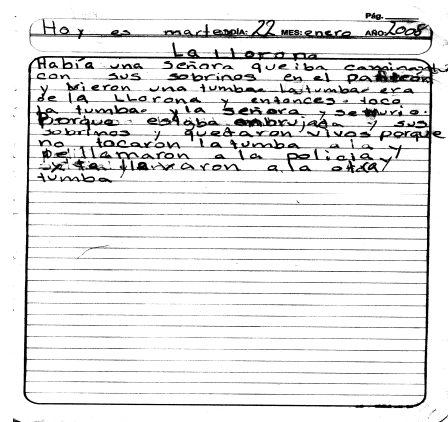 Pág.
Hoy es martes DÍA: 22 MES: enero AÑO: 2008
La Llorona
Había una señora que iba caminando
con sus sobrinos en el panteon
y vieron una tumba la tumba era
de la LLorona y entonces toco
la tumba y la señora se murio
Porque estaba embrujada y sus
sobrinos y quedaron vivos porque
no tocaron la tumba a la y
llamaron a la policia y
llevaron a la otra
tumba